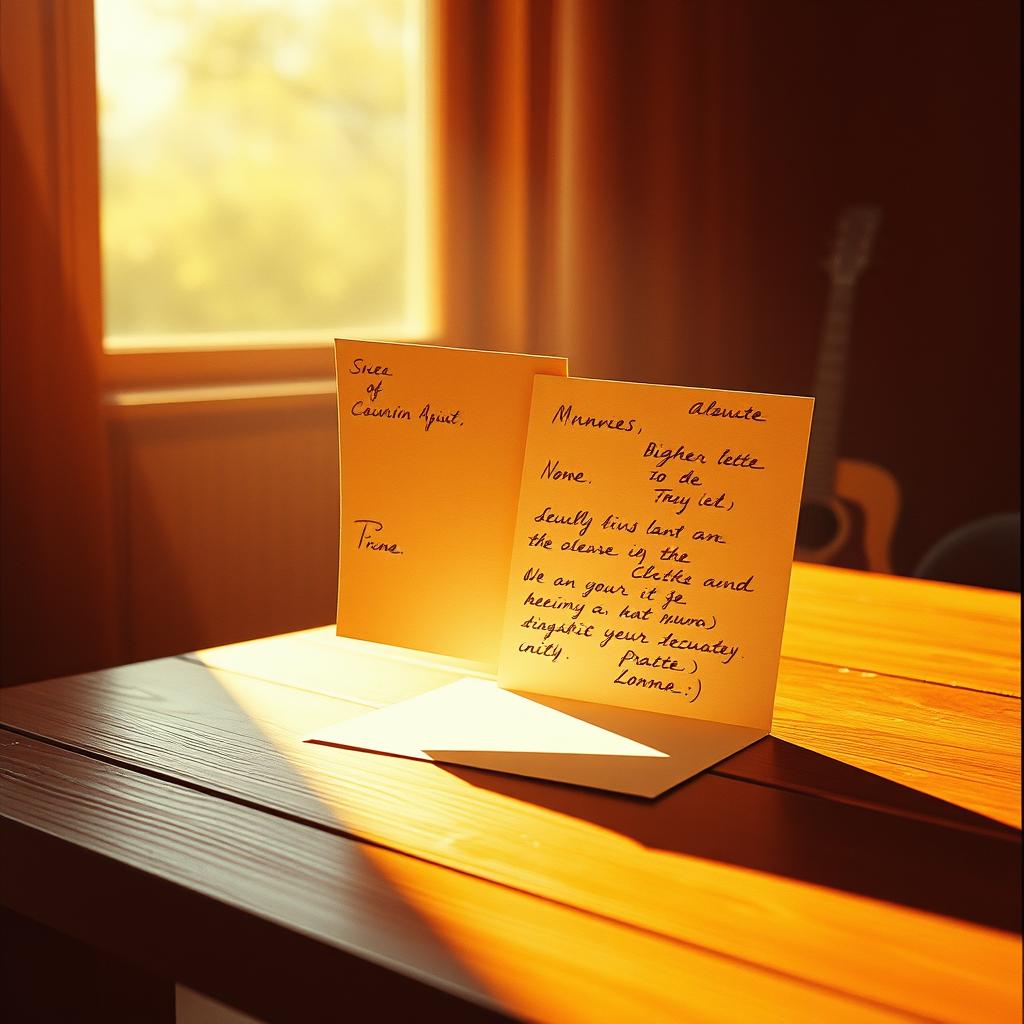 Sucea
of
Cauvin Apiut.
Pruna.
alaute
Mnnrues,
Bigher lette
Nome. to de
Tray let,
Seudly fins lant are
the olease is the
Cletks aund
We an your it ge
heeimy a, hat mura)
tingshit your tecuatey.
inity. Pratte)
Lonma:)